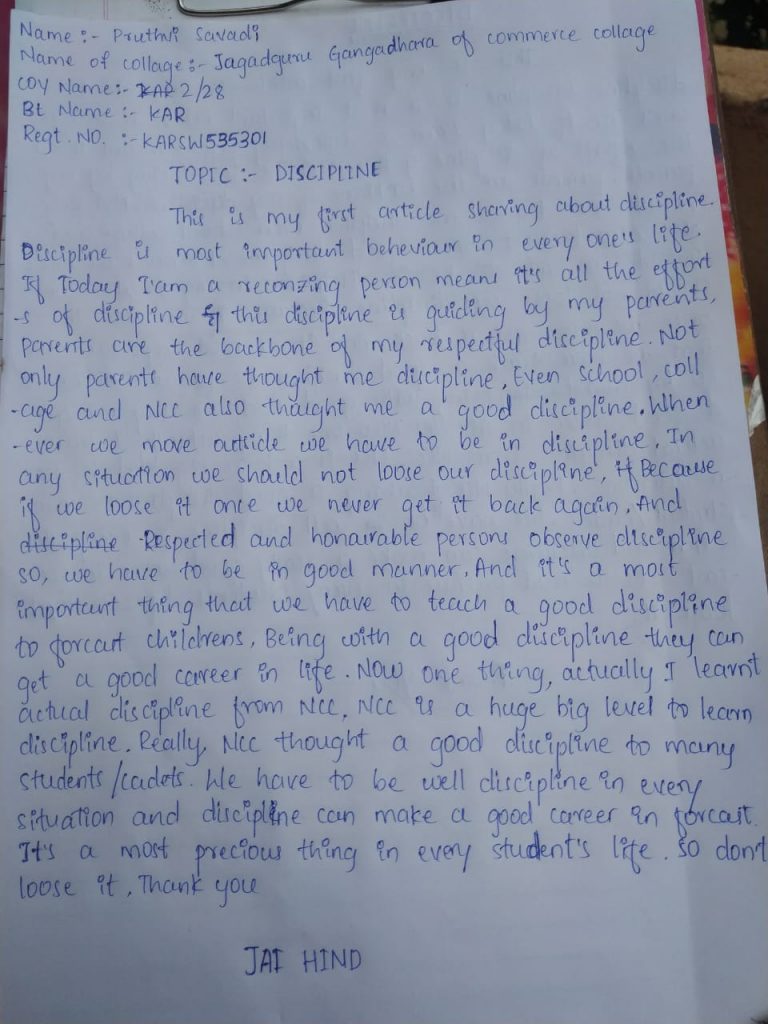 Name :- Pruthvi Savadi
Name of collage :- Jagadguru Gangadhara of commerce collage
COY Name :- KAR 2/28
Bt Name :- KAR
Regt. NO. :- KARSW535301
TOPIC :- DISCIPLINE
This is my first article sharing about discipline.
Discipline is most important beheviour in every one's life.
If Today I'am a reconzing person means it's all the effort
-s of discipline & this discipline is guiding by my parents,
parents are the backbone of my respectful discipline. Not
only parents have thought me discipline, Even school, coll
-age and NCC also thaught me a good discipline. When
-ever we move outside we have to be in discipline. In
any situation we should not loose our discipline, if Because
if we loose it once we never get it back again. And
discipline Respected and honairable persons observe discipline
so, we have to be in good manner. And it's a most
important thing that we have to teach a good discipline
to forcast childrens. Being with a good discipline they can
get a good career in life. Now one thing, actually I learnt
actual discipline from NCC. NCC is a huge big level to learn
discipline. Really, NCC thought a good discipline to many
students/cadets. We have to be well discipline in every
situation and discipline can make a good career in forcast.
It's a most precious thing in every student's life. So don't
loose it, Thank you
JAI HIND